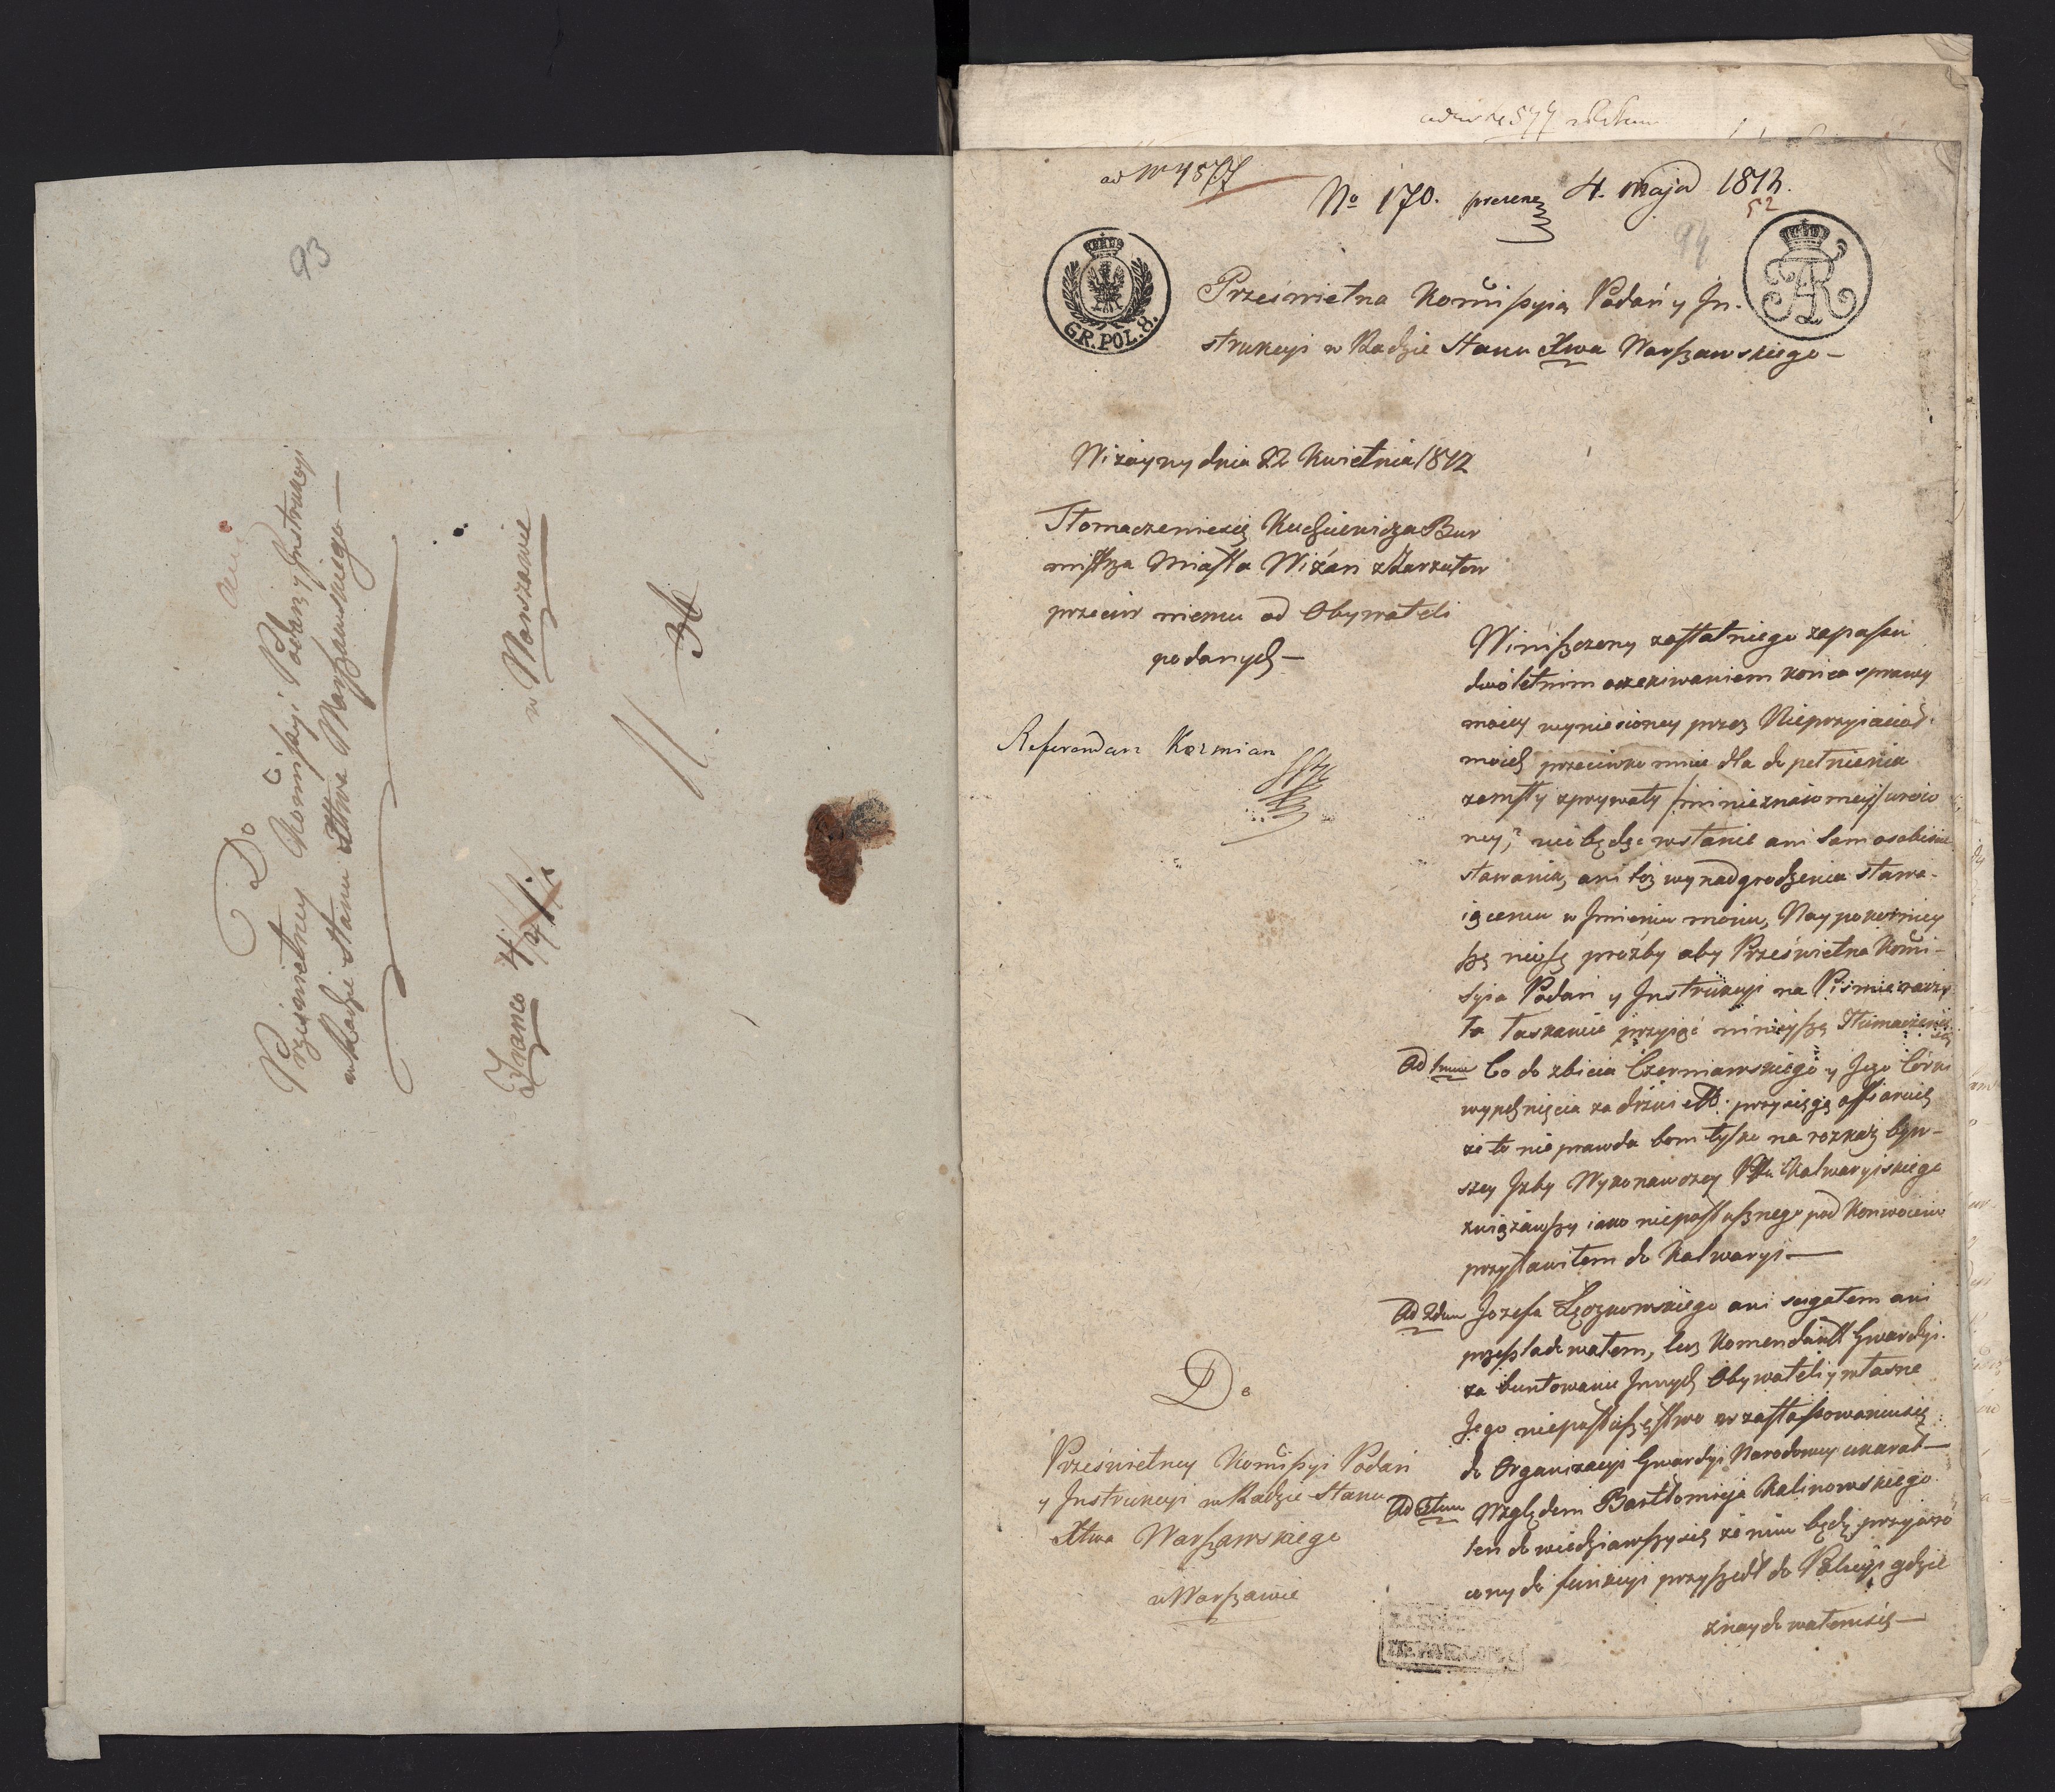 93
Do
Prześwietney Komißyi Podań y Jnstrukcyi
w Radzie Stanu Xttwa Warßawskiego —
w Warszawie
Franco
36
ad Nr 4577
No 170. presenz 4. Maja 1812.
52
94
GR. POL. 8.
Prześwietna Komißyia Podań y Jn-
strukcyi w Radzie Stanu Xtwa Warßawskiego —
Wiżayny dnia 22 Kwietnia 1812
Tłomaczenie się Burmistrza
mistrza Miasta Wiżan z Zarzutow
przeciw niemu od Obywateli
podanych —
Referendarz Kozmian
Winißczony z ostatniego zapasu
dwóletnim oczekiwaniem końca sprawy
moiey wyniesioney przez Nieprzyiaciół
moich przeciwko mnie dla dopełnienia
zemsty z prywaty
ney, nie będąc w stanie ani sam osobiście
stawania, ani też wynadgrodzenia stawa-
iącemu w Jmieniu moim, Naypokorniey
ßę nioßę prożby aby Prześwietna Komi-
syia Podań y Jnstrukcyi na Piśmie raczy-
ła łaskawie przyiąć ninieyßę Tłumaczenie
Ad 1mum Co do zbicia Czerniawskiego y Jego Córki
wypchnięcia za drzwi etc. przysięgą offiaruię
że to nieprawda bom tylko na rozkaz byw-
szey Jzby Wykonawczey Pttu Kalwaryiskiego
związawßy iako nieposłußnego pod Konwoiem
przystawiłem do Kalwaryi —
Ad 2dum Jozefa Łęczkowskiego ani ścigałem ani
prześladowałem, lecz Komendant Gwardyi
za buntowanie Jnnych Obywateli y własne
Jego nieposłußeństwo w zastosowaniu się
do Organizacyi Gwardyi Narodowey ukarał —
Ad 3tium Względem Bartłomieja Kalinowskiego
ten dowiedziawßy się że nim będę przywró
cony do funkcyi przyßedł do Policyi gdzie
znaydowałem się —
Do
Prześwietney Komißyi Podań
y Jnstrukcyi w Radzie Stanu
Xttwa Warßawskiego
w Warßawie